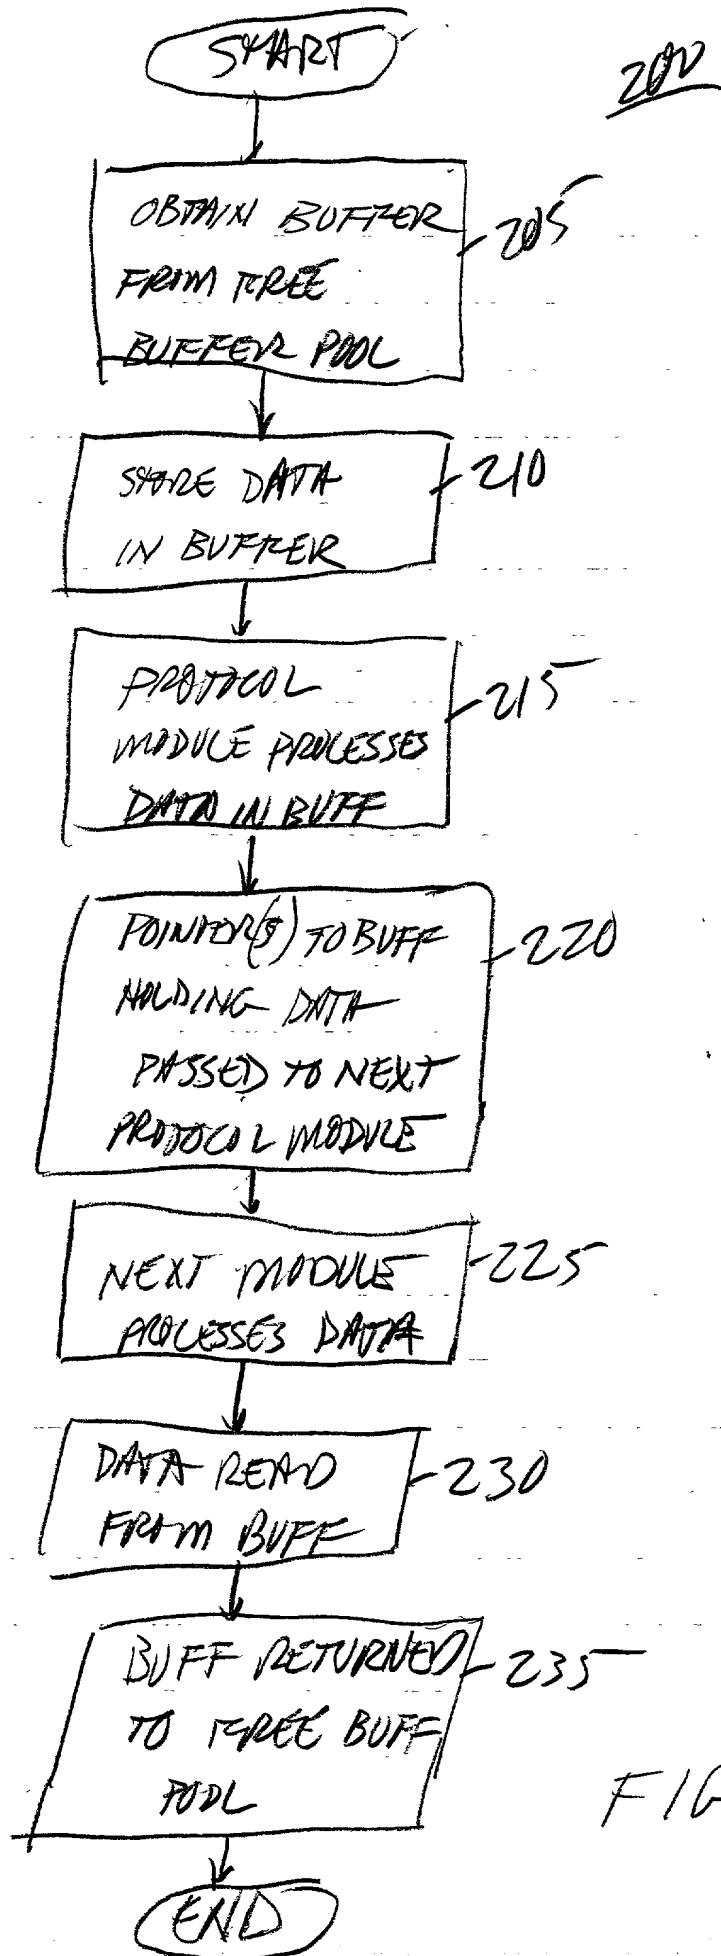 START
200
OBTAIN BUFFER
FROM FREE
BUFFER POOL
205
STORE DATA
IN BUFFER
210
PROTOCOL
MODULE PROCESSES
DATA IN BUFF
215
POINTER(S) TO BUFF
HOLDING DATA
PASSED TO NEXT
PROTOCOL MODULE
220
NEXT MODULE
PROCESSES DATA
225
DATA READ
FROM BUFF
230
BUFF RETURNED
TO FREE BUFF
POOL
235
FIG
END